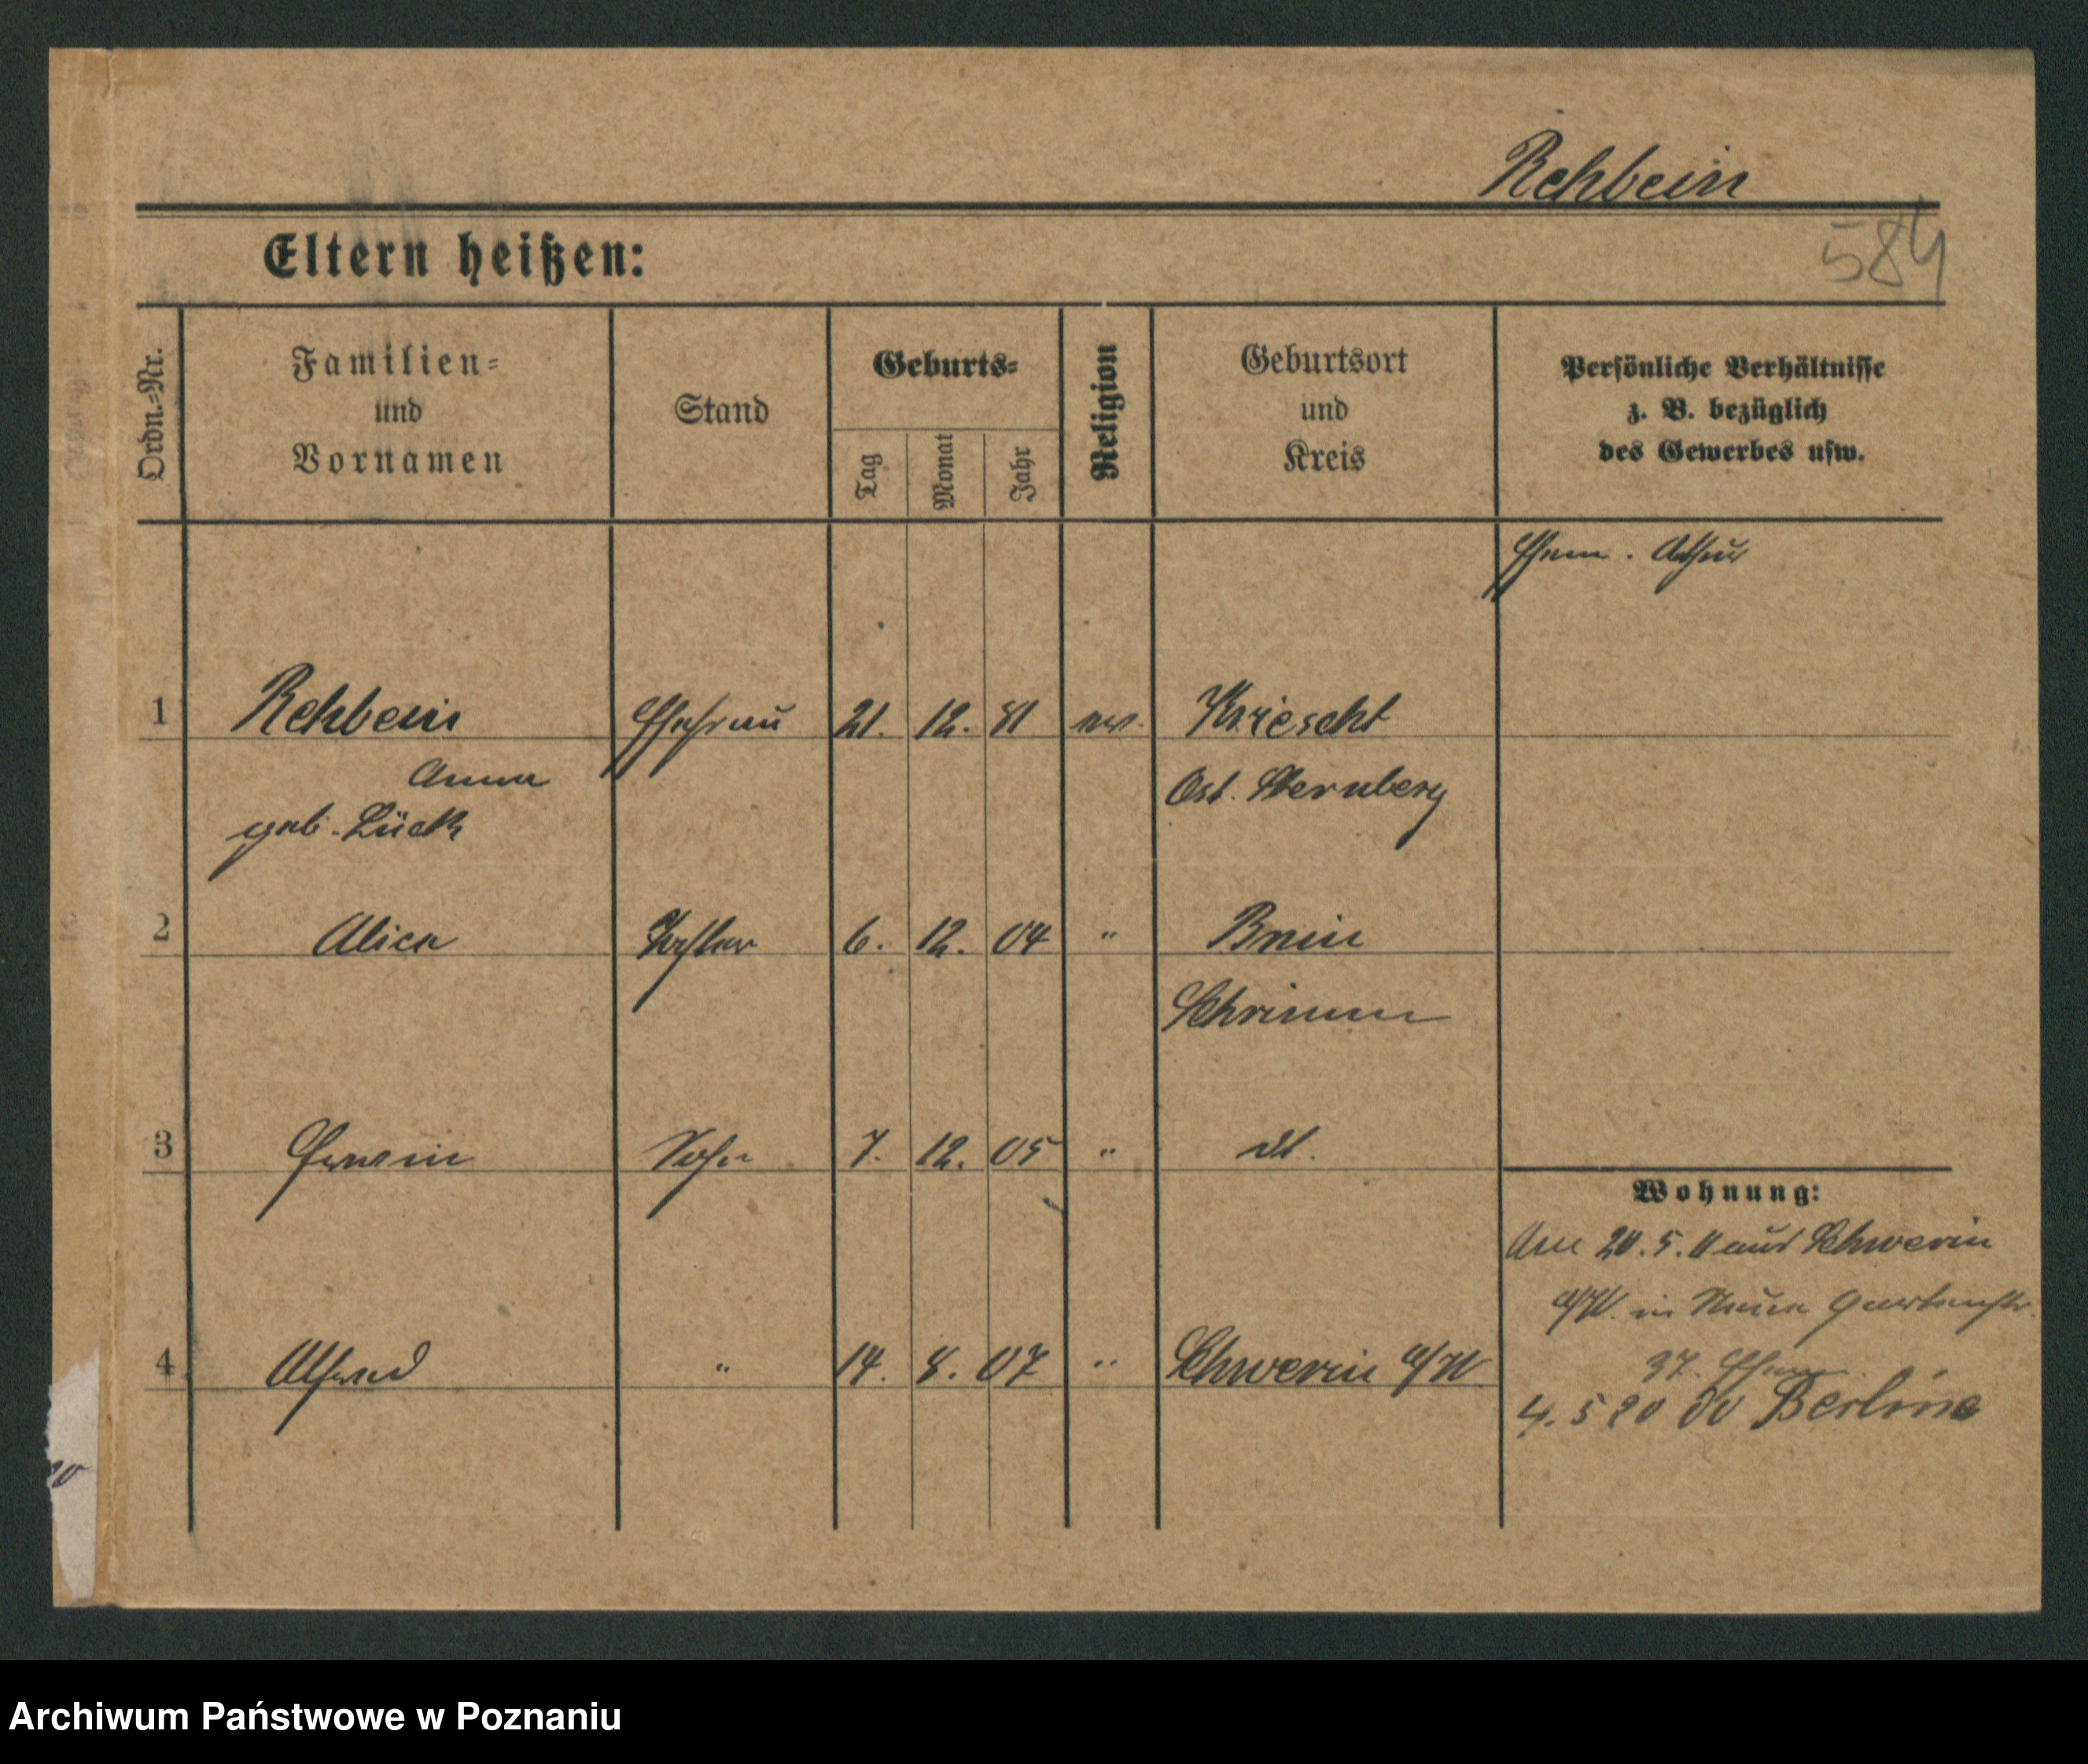 Rehbein
584
Eltern heißen:
Ordn.=Nr.
Familien=
und
Vornamen
Stand
Geburts=
Tag
Monat
Jahr
Religion
Geburtsort
und
Kreis
Persönliche Verhältnisse
z. B. bezüglich
des Gewerbes usw.
Ehem. Arthur
1 Rehbein Ehefrau 21. 12. 81 ev. Kriescht
Anna Ost. Sternberg
geb. Lück
2 Alice Tochter 6. 12. 04 " Bnin
Schrimm
3 Erwin Sohn 7. 12. 05 " dt.
Wohnung:
Am 20.5.11 aus Schwerin
a/W. in Neue Gartenstr.
4 Alfred " 14. 8. 07 " Schwerin a/W
37. Ehem
4. 5 20 Berlin
Archiwum Państwowe w Poznaniu